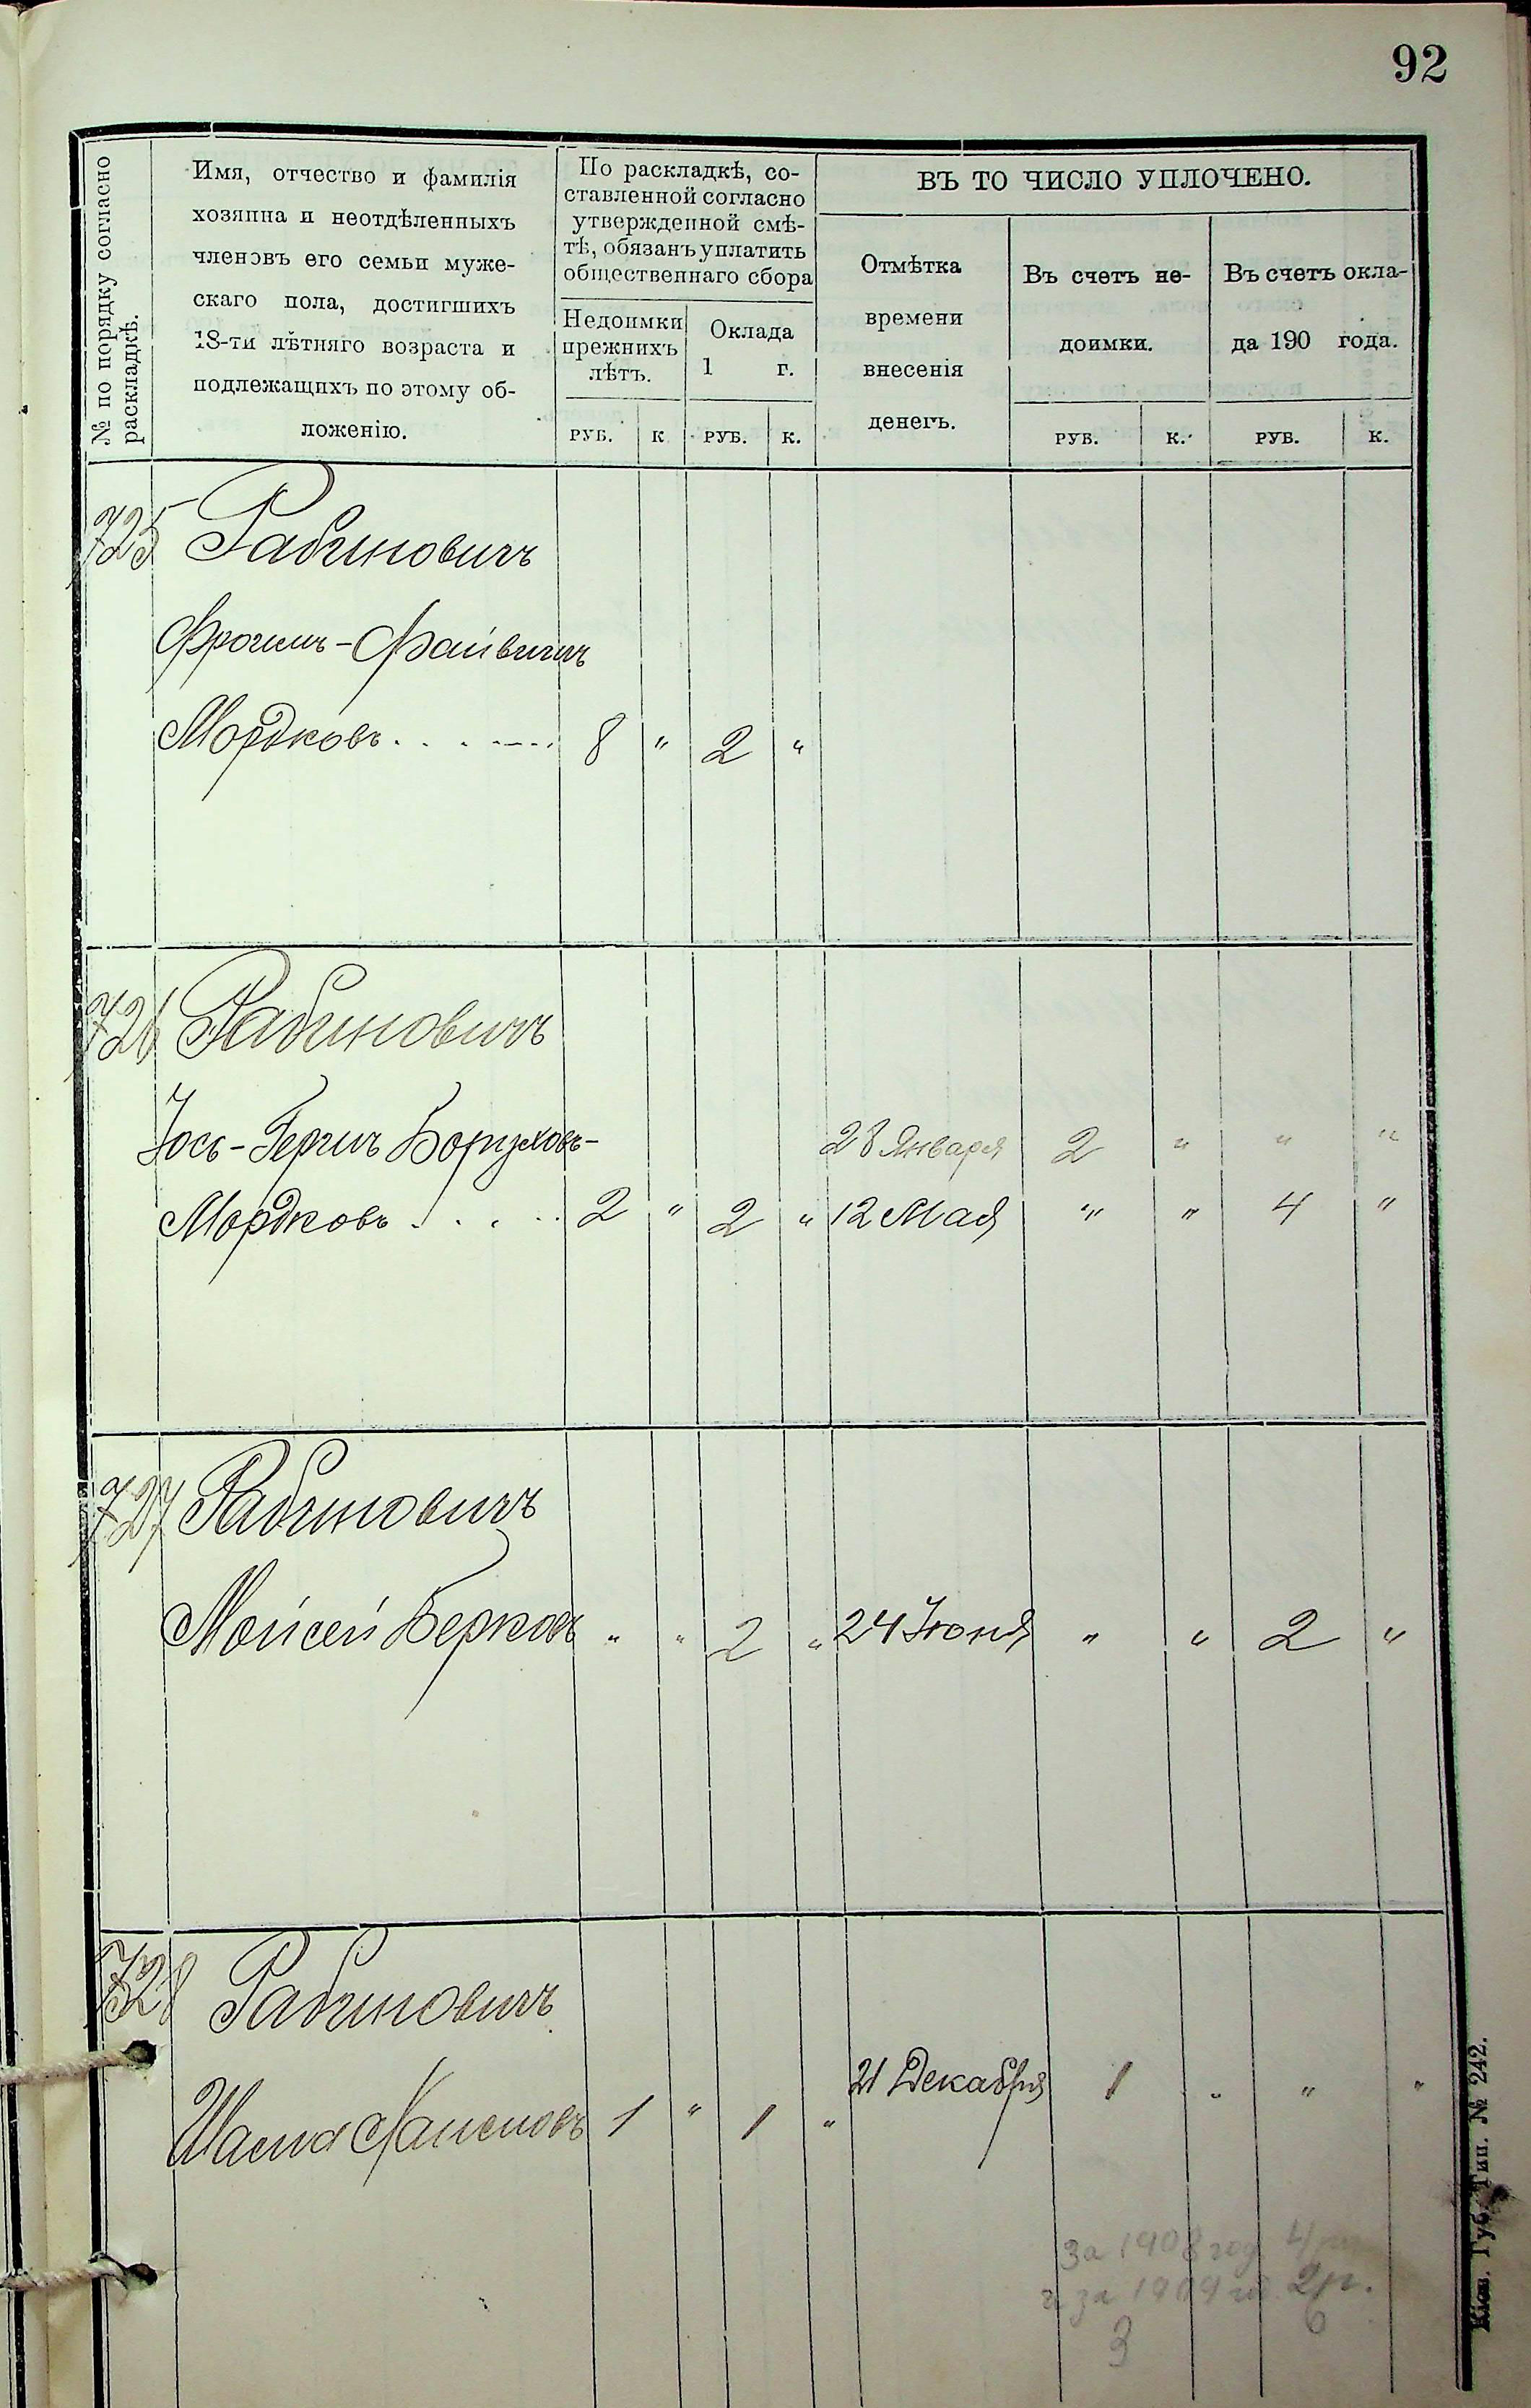 92
№ по порядку согласно
раскладкѣ.
Имя, отчество и фамилія
хозяина и неотдѣленныхъ
членовъ его семьи муже-
скаго пола, достигшихъ
18-ти лѣтняго возраста и
подлежащихъ по этому об-
ложенію.
По раскладкѣ, со-
ставленной согласно
утвержденной смѣ-
тѣ, обязанъ уплатить
общественнаго сбора
Недоимки
прежнихъ
лѣтъ.
Оклада
1 г.
ВЪ ТО ЧИСЛО УПЛОЧЕНО.
Отмѣтка
времени
внесенія
денегъ.
Въ счетъ не-
доимки.
Въ счетъ окла-
да 190 года.
РУБ. К РУБ. К. РУБ. К. РУБ. К.
725 Рабиновичъ
Фроимъ-Файвишъ
Мордковъ 8 " 2 "
726 Рабиновичъ
Іось-Гершъ Боруховъ- 28 Января 2 " " "
Мордковъ 2 " 2 " 12 Мая " " 4 "
727 Рабиновичъ
Мойсей Берковъ " " 2 " 24 Іюня " " 2 "
728 Рабиновичъ
21 Декабря 1 " " "
Хаимовъ 1 " 1 "
За 1908 год 4
и за 1909 2р.
3 6
Кіев. Губ. Тип. № 242.